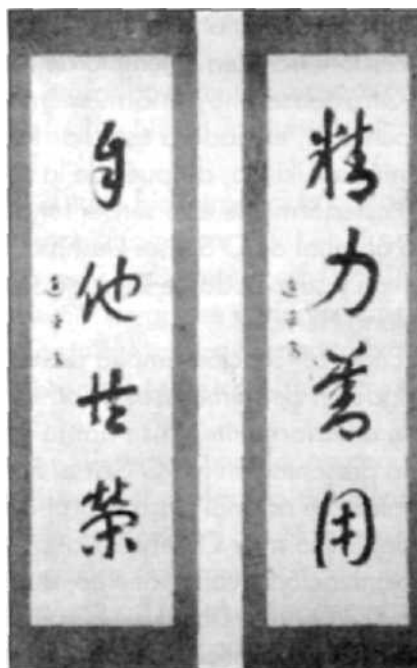 精力善用
自他共榮